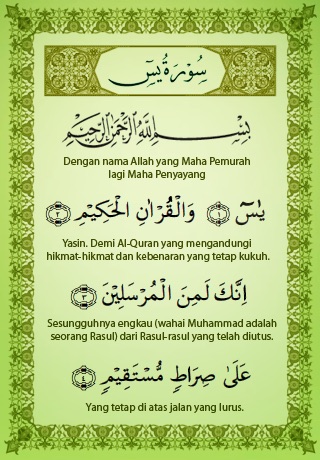 سُوْرَةُ يٰسٓ
بِسْمِ اللّٰهِ الرَّحْمٰنِ الرَّحِيْمِ
Dengan nama Allah yang Maha Pemurah
lagi Maha Penyayang
يٰسٓ ﴿١﴾ وَالْقُرْاٰنِ الْحَكِيْمِ ﴿٢﴾
Yasin. Demi Al-Quran yang mengandungi
hikmat-hikmat dan kebenaran yang tetap kukuh.
اِنَّكَ لَمِنَ الْمُرْسَلِيْنَ ﴿٣﴾
Sesungguhnya engkau (wahai Muhammad adalah
seorang Rasul) dari Rasul-rasul yang telah diutus.
عَلٰى صِرَاطٍ مُّسْتَقِيْمٍ ﴿٤﴾
Yang tetap di atas jalan yang lurus.